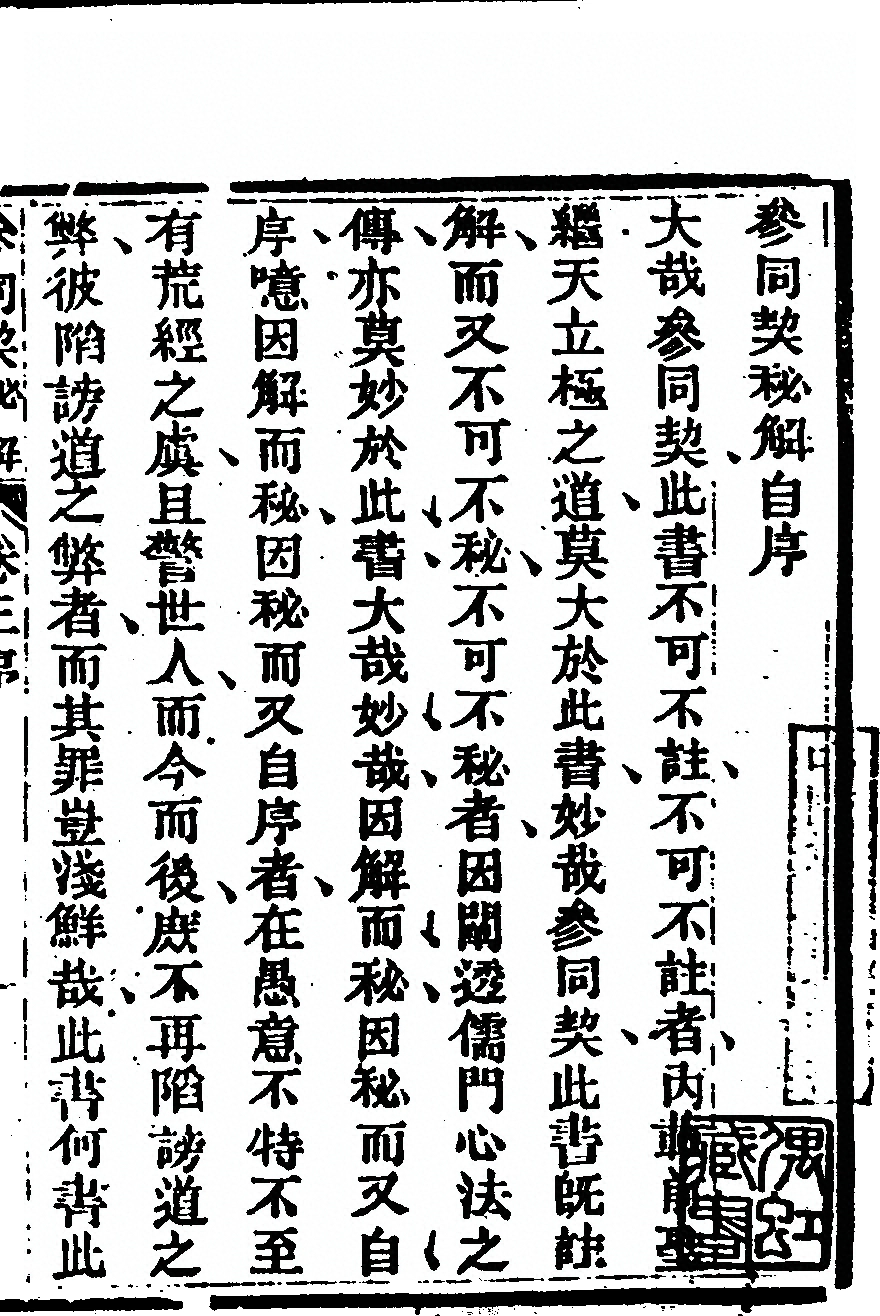 參同契秘解自序
大哉參同契此書不可不註不可不註者內載前聖
繼天立極之道莫大於此書妙哉參同契此書既註
解而又不可不秘不可不秘者因闡透儒門心法之
傳亦莫妙於此書大哉妙哉因解而秘因秘而又自
序噫因解而秘因秘而又自序者在愚意不特不至
有荒經之虞且警世人而今而後庶不再陷謗道之
弊彼陷謗道之弊者而其罪豈淺鮮哉此書何書此
參同契秘解 卷三序
藏書